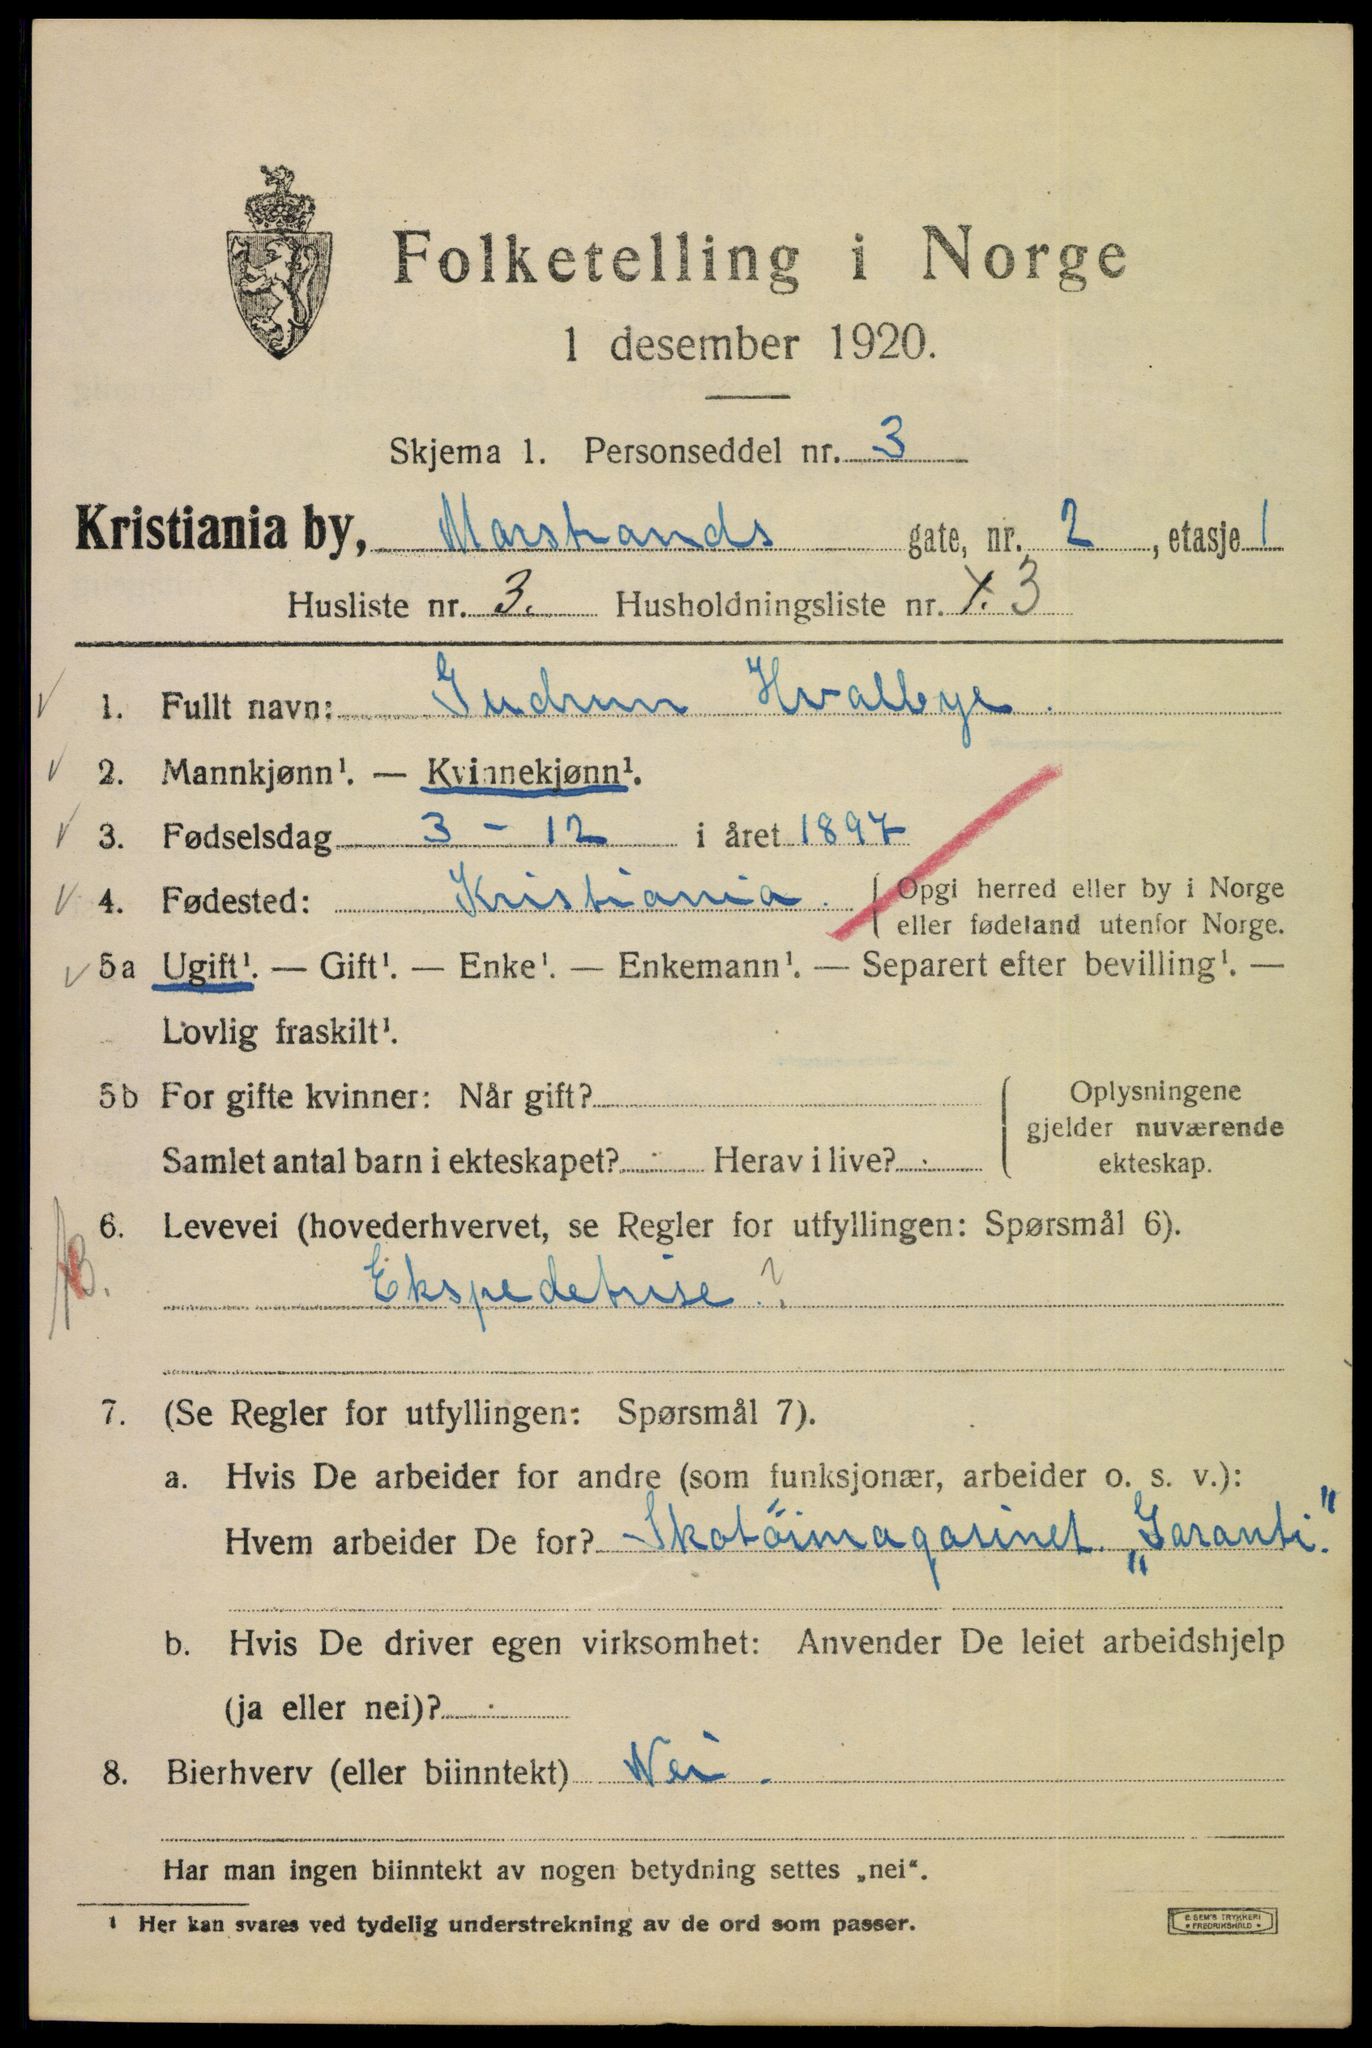 Folketelling i Norge
1 desember 1920.
Skjema 1. Personseddel nr. 3
Kristiania by, Marstrands gate, nr. 2, etasje 1
Husliste nr. 3. Husholdningsliste nr. 3
1. Fullt navn: Gudrun Hvalbye.
2. Mannkjønn¹. — Kvinnekjønn¹.
3. Fødselsdag 3 - 12 i året 1897
4. Fødested: Kristiania. Opgi herred eller by i Norge
eller fødeland utenfor Norge.
5a Ugift¹. — Gift¹. — Enke¹. — Enkemann¹. — Separert efter bevilling¹. —
Lovlig fraskilt¹.
5b For gifte kvinner: Når gift? Oplysningene
gjelder nuværende
Samlet antal barn i ekteskapet? Herav i live? ekteskap.
6. Levevei (hovederhvervet, se Regler for utfyllingen: Spørsmål 6).
Ekspedetrise ?
7. (Se Regler for utfyllingen: Spørsmål 7).
a. Hvis De arbeider for andre (som funksjonær, arbeider o. s. v.):
Hvem arbeider De for? Skotöimagasinet „Garanti."
b. Hvis De driver egen virksomhet: Anvender De leiet arbeidshjelp
(ja eller nei)?
8. Bierhverv (eller biinntekt) Nei.
Har man ingen biinntekt av nogen betydning settes „nei“.
¹ Her kan svares ved tydelig understrekning av de ord som passer.
E. SEM'S TRYKKERI
* FREDRIKSHALD *